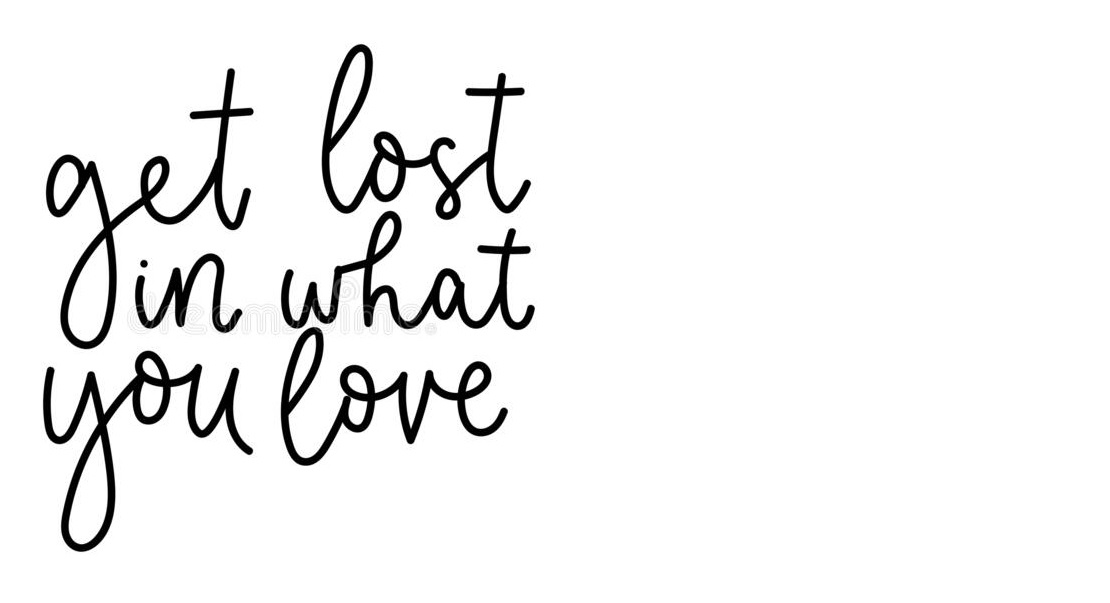 get lost
in what
you love
dreamstime.